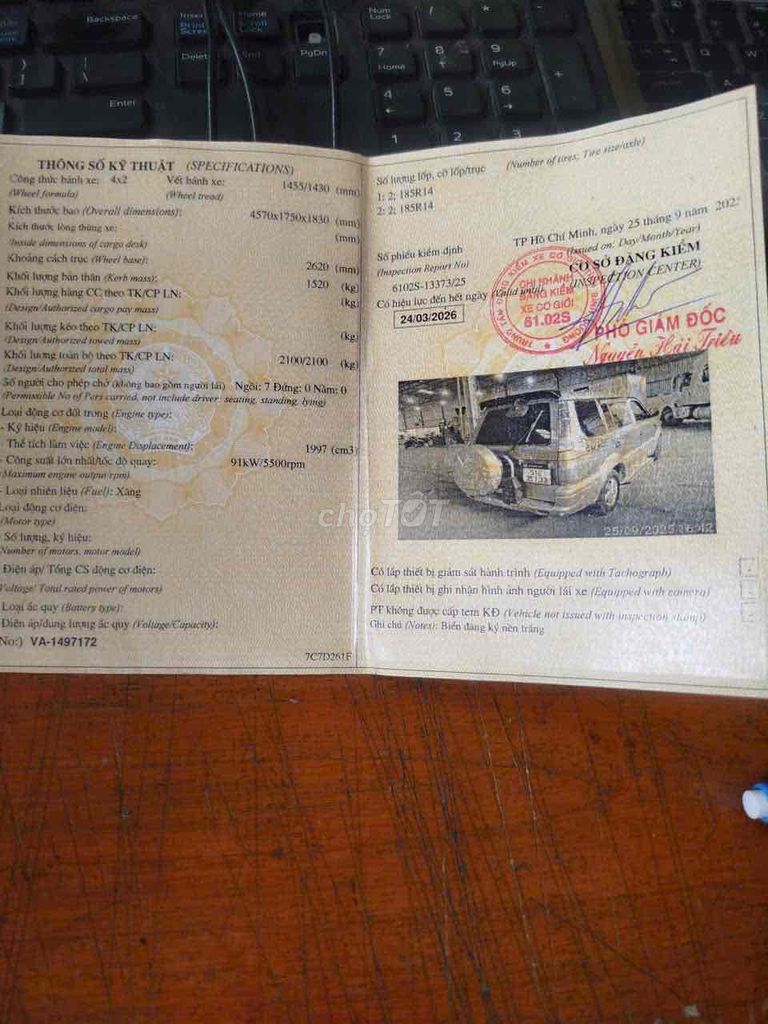 Backspace
Insert
Home
Num
Lock
/
*
-
Print
Scrn
Scroll
Lock
Delete
End
PgDn
7
8
9
Home
PgUp
+
Enter
4
5
6
1
2
3
THÔNG SỐ KỸ THUẬT (SPECIFICATIONS)
Công thức bánh xe: 4x2 Vết bánh xe: 1455/1430 (mm)
(Wheel formula) (Wheel tread)
Kích thước bao (Overall dimensions): 4570x1750x1830 (mm)
Kích thước lòng thùng xe: (mm)
(Inside dimensions of cargo desk)
Khoảng cách trục (Wheel base): 2620 (mm)
Khối lượng bản thân (Kerb mass): 1520 (kg)
Khối lượng hàng CC theo TK/CP LN: (kg)
(Design/Authorized cargo pay mass)
Khối lượng kéo theo TK/CP LN: (kg)
(Design/Authorized towed mass)
Khối lượng toàn bộ theo TK/CP LN: 2100/2100 (kg)
(Design/Authorized total mass)
Số người cho phép chở (không bao gồm người lái) Ngồi: 7 Đứng: 0 Nằm: 0
(Permissible No of Pers carried, not include driver: seating, standing, lying)
Loại động cơ đốt trong (Engine type):
- Ký hiệu (Engine model):
- Thể tích làm việc (Engine Displacement): 1997 (cm3)
- Công suất lớn nhất/tốc độ quay: 91kW/5500rpm
(Maximum engine output/rpm)
- Loại nhiên liệu (Fuel): Xăng
Loại động cơ điện:
(Motor type)
Số lượng, ký hiệu:
Number of motors, motor model)
Điện áp/ Tổng CS động cơ điện:
Voltage/ Total rated power of motors)
Loại ắc quy (Battery type):
Điện áp/dung lượng ắc quy (Voltage/Capacity):
No:) VA-1497172
7C7D261F
Số lượng lốp, cỡ lốp/trục (Number of tires; Tire size/axle)
1: 2; 185R14
2: 2; 185R14
TP Hồ Chí Minh, ngày 25 tháng 9 năm 202
(Issued on: Day/Month/Year)
Số phiếu kiểm định
(Inspection Report No)
6102S-13373/25
CƠ SỞ ĐĂNG KIỂM
(INSPECTION CENTER)
Có hiệu lực đến hết ngày (Valid until)
24/03/2026
CHI NHÁNH
ĐĂNG KIỂM
XE CƠ GIỚI
61.02S
PHÓ GIÁM ĐỐC
Nguyễn Hải Triều
25/09/2025 16:12
chợTỐT
Có lắp thiết bị giám sát hành trình (Equipped with Tachograph)
Có lắp thiết bị ghi nhận hình ảnh người lái xe (Equipped with camera)
PT không được cấp tem KĐ (Vehicle not issued with inspection stamp)
Ghi chú (Notes): Biển đăng ký nền trắng